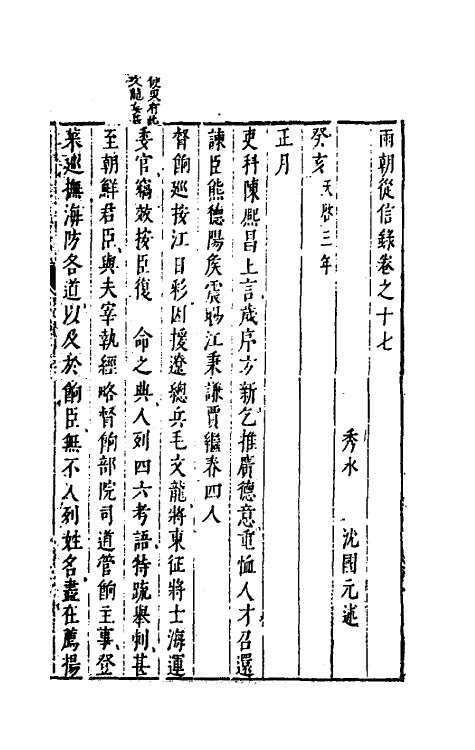 兩朝從信錄卷之十七
秀水 沈國元述
癸亥 天啟三年
正月
吏科陳熙昌上言歲序方新乞推廣德意重恤人才召還
諫臣熊德陽侯震暘江秉謙賈繼春四人
督餉巡按江日彩因援遼總兵毛文龍將東征將士海運
委官竊效按臣復 命之典人列四六考語特疏舉刺甚
至朝鮮君臣與夫宰執經略督餉部院司道管餉主事登
萊巡撫海防各道以及於餉臣無不人列姓名盡在薦揚